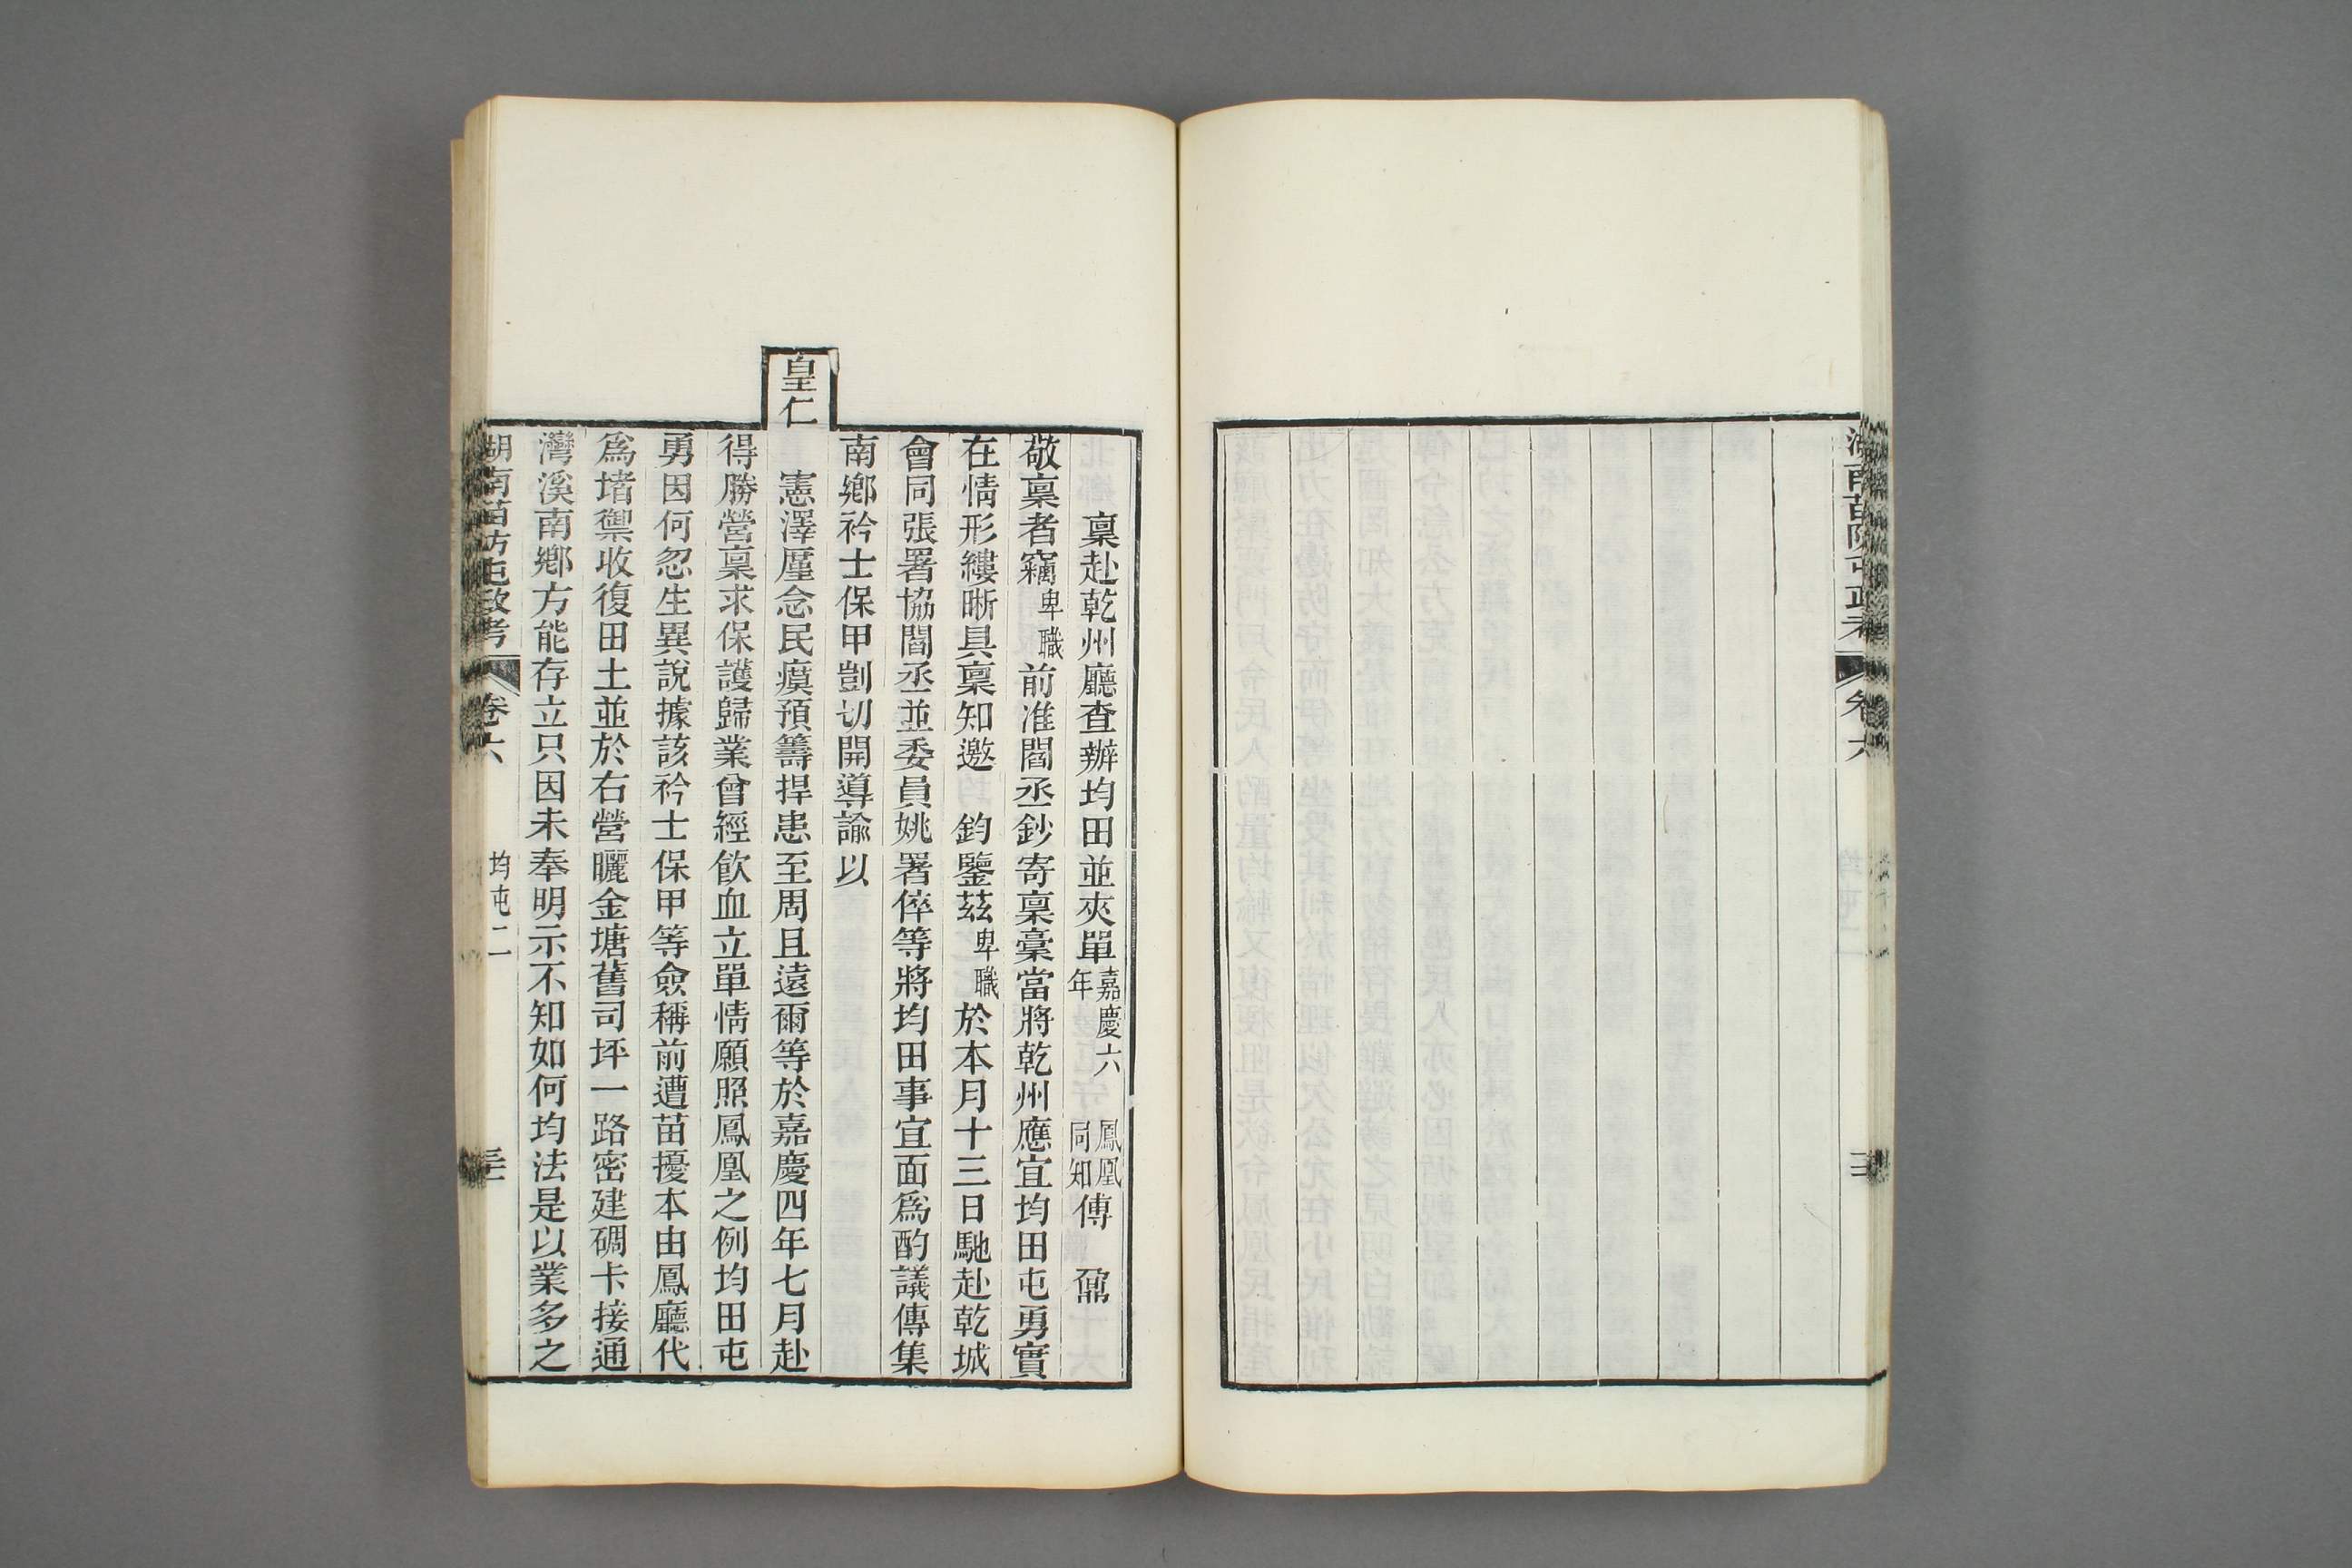 湖南苗防屯政考 卷六
稟赴乾州廳查辦均田並夾單嘉慶六年 鳳凰同知傅鼐
敬稟者竊卑職前准閻丞鈔寄稟稾當將乾州應宜均田屯勇實
在情形縷晣具稟知邀 鈞鑒茲卑職於本月十三日馳赴乾城
會同張署協閻丞並委員姚署倅等將均田事宜面爲酌議傳集
南鄉衿士保甲剴切開導諭以
皇仁 憲澤厪念民瘼預籌捍患至周且遠爾等於嘉慶四年七月赴
得勝營稟求保護歸業曾經飲血立單情願照鳳凰之例均田屯
勇因何忽生異說據該衿士保甲等僉稱前遭苗擾本由鳳廳代
爲堵禦收復田土並於右營曬金塘舊司坪一路密建碉卡接通
灣溪南鄉方能存立只因未奉明示不知如何均法是以業多之
湖南苗防屯政考 卷六 均屯二